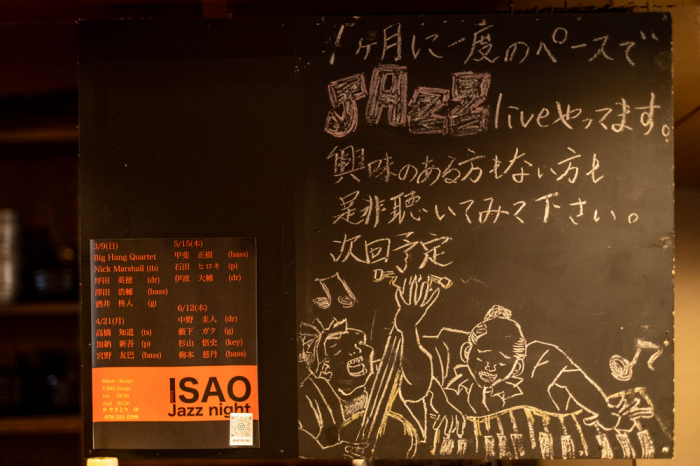 1ヶ月に一度のペースで
JAZZ liveやってます。
興味のある方もない方も
是非聴いてみて下さい。
次回予定
3/9(日)
Big Hang Quartet
Nick Marshall (tb)
坪田 英徳 (dr)
澤田 浩輔 (bass)
酒井 柊人 (g)
4/21(月)
高橋 知道 (ts)
加納 新吾 (p)
宮野 友巴 (bass)
5/15(木)
甲斐 正樹 (bass)
石田 ヒロキ (p)
伊波 大輔 (dr)
6/12(木)
中野 圭人 (dr)
籔下 ガク (g)
杉山 悟史 (key)
梅本 慈丹 (bass)
Music charge
ISAO
Jazz night